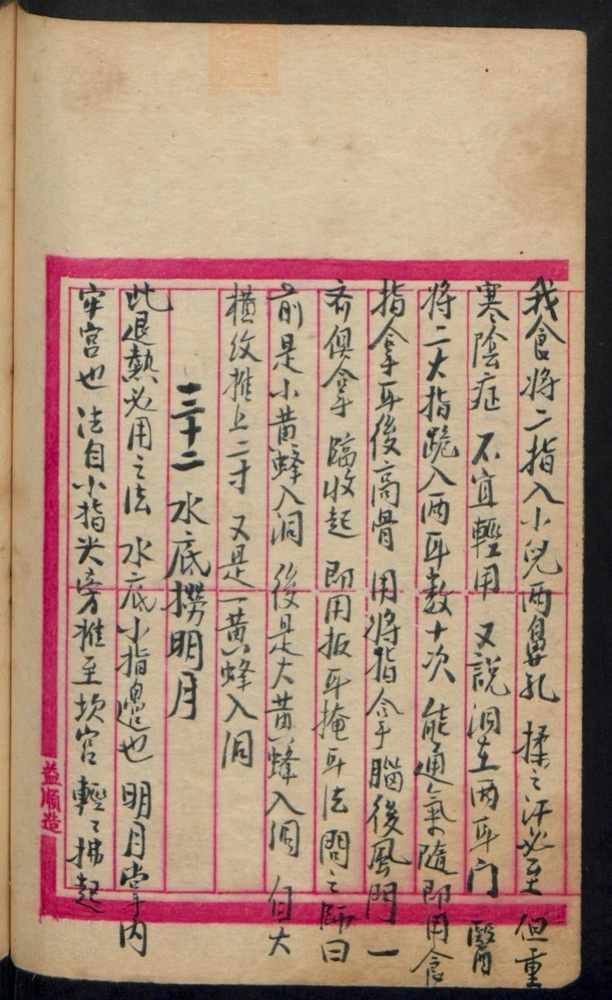 我食將二指入小兒兩鼻孔 揉之汗必至 但重
寒陰症 不宜輕用 又説洞在两耳门 醫
將二大指跪入两耳数十次 能通氣隨即用食
指拿耳後高骨 用將指拿腦後風門 一
齐俱拿 臨收起 即用扳耳掩耳法 問之師曰
前是小黄蜂入洞 後是大黄蜂入洞 自大
橫纹推上二寸 又是一黄蜂入洞
三十二 水底撈明月
此退熱必用之法 水底小指邊也 明月掌内
牢宫也 法自小指尖旁推至坎宫 輕々拂起
益順造